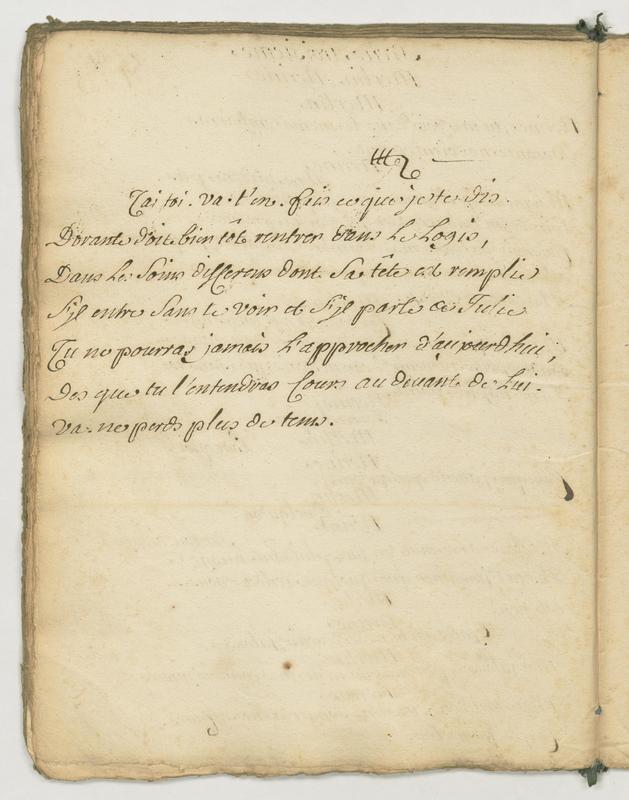 Tai toi. va. t'en. fais ce que je te dis.
Dorante doit bien tôt rentrer dans Le Logis,
Dans Les Soins differens dont Sa tête est remplie
S'jl entre Sans te voir et S'jl parle a Julie
Tu ne pourras jamais L'approcher d'aujourdhui,
Des que tu l'entendras Cours au devant de Lui.
va. ne perds plus de tems.